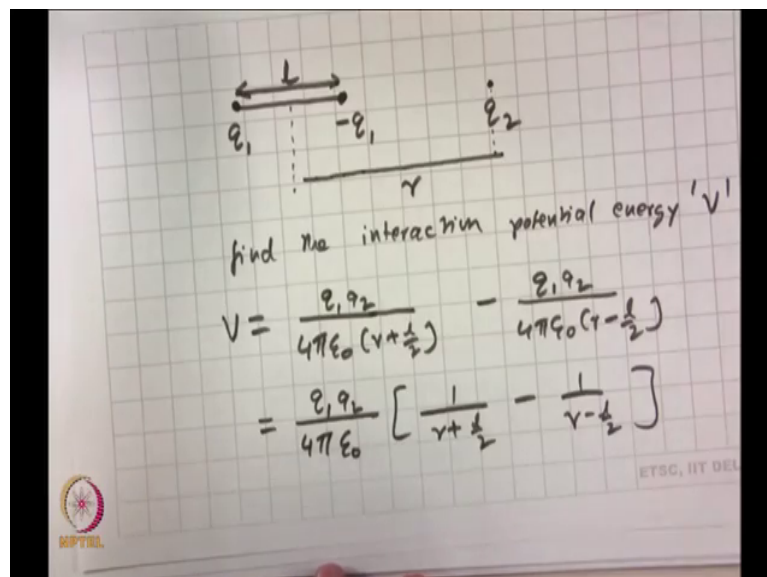 L
q₁ -q₁ q₂
r
find the interaction potential energy 'V'
V = q₁q₂ / 4πε₀(r+l/2) - q₁q₂ / 4πε₀(r-l/2)
= q₁q₂ / 4πε₀ [ 1 / r+l/2 - 1 / r-l/2 ]
ETSC, IIT DEL
NPTEL